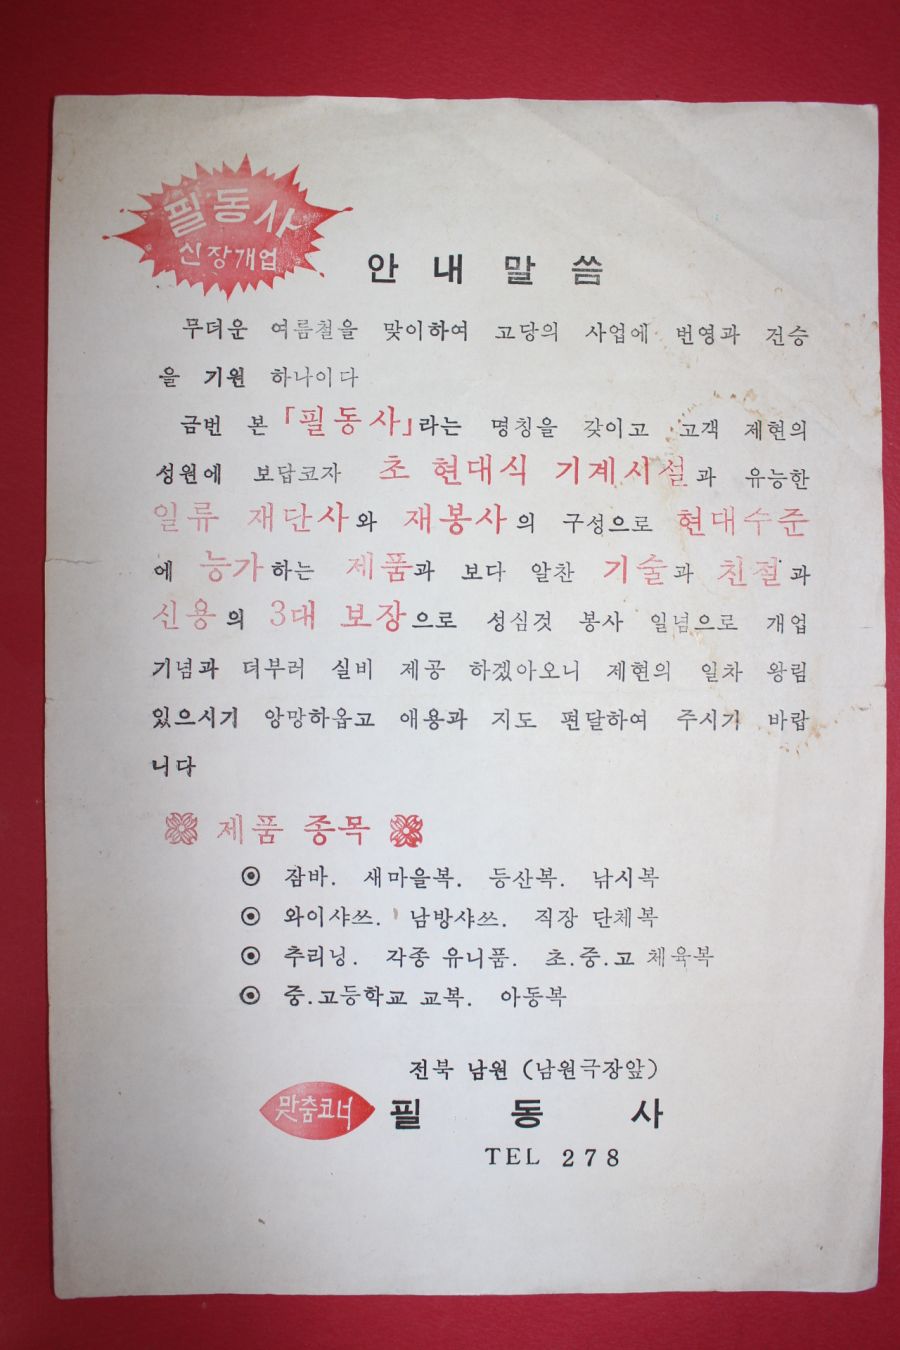 필동사
신장개업
안내말씀
무더운 여름철을 맞이하여 고당의 사업에 번영과 건승
을 기원 하나이다
금번 본 「필동사」라는 명칭을 갖이고 고객 제현의
성원에 보답코자 초 현대식 기계시설과 유능한
일류 재단사와 재봉사의 구성으로 현대수준
에 능가하는 제품과 보다 알찬 기술과 친절과
신용의 3대 보장으로 성심것 봉사 일념으로 개업
기념과 더부러 실비 제공 하겠아오니 제현의 일차 왕림
있으시기 앙망하옵고 애용과 지도 편달하여 주시기 바랍
니다
제품 종목
⊙ 잠바. 새마을복. 등산복. 낚시복
⊙ 와이샤쓰. 남방샤쓰. 직장 단체복
⊙ 추리닝. 각종 유니품. 초.중.고 체육복
⊙ 중.고등학교 교복. 아동복
전북 남원 (남원극장앞)
맞춤코너 필동사
TEL 278